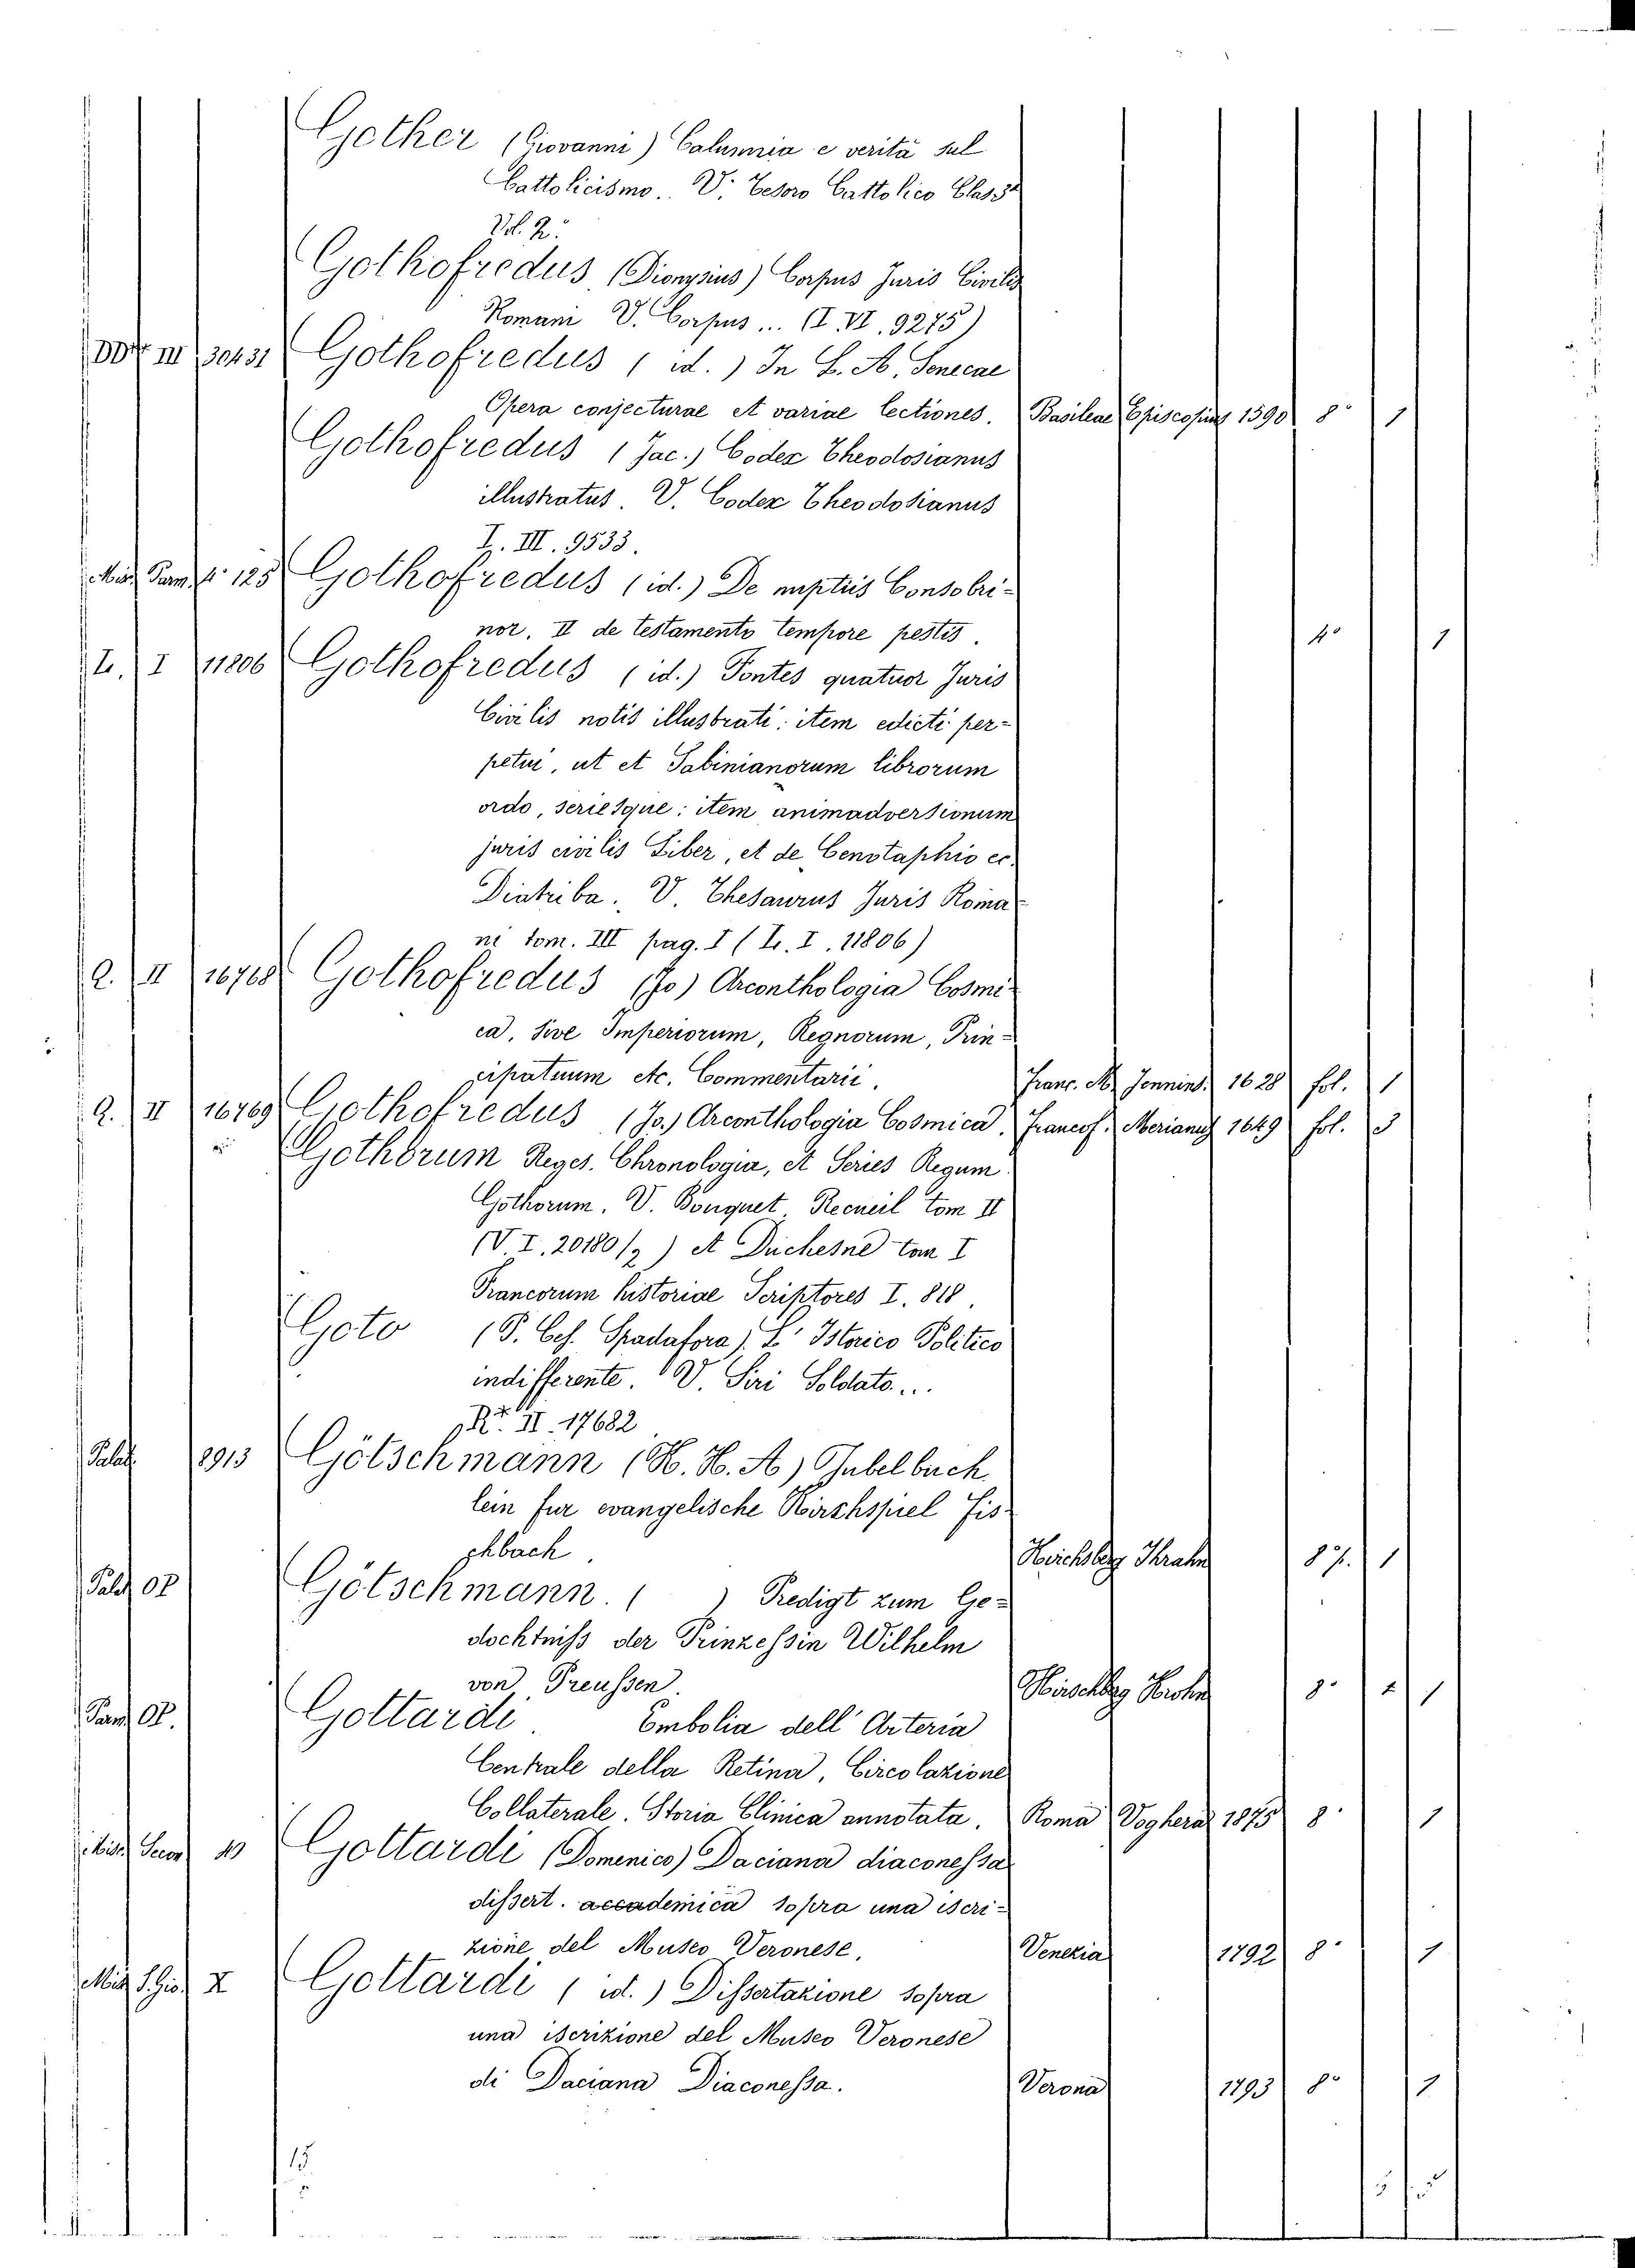 Gother (Giovanni) Calunnia e verità sul
Cattolicismo. V. Tesoro Cattolico Class
Vol. 2.
Gothofredus (Dionysius) Corpus Juris Civilis
Romani V. Corpus ... (I. VI. 9275)
III 30431 Gothofredus ( id. ) In L. A. Senecae
Opera conjecturae et variae lectiones. Basileae Episcopius 1590 8° 1
Gothofredus ( Jac. ) Codex Theodosianus
illustratus. V. Codex Theodosianus
I. III. 9533.
125 Gothofredus ( id. ) De nuptiis Consobri-
nor. II de testamento tempore pestis. 4° 1
L. I 11806 Gothofredus ( id. ) Fontes quatuor Juris
Civilis notis illustrati: item edicti per=
petui, ut et Sabinianorum librorum
ordo, seriesque: item animadversionum
juris civilis Liber, et de Cenotaphio ec.
Diatriba. V. Thesaurus Juris Roma-
ni tom. III pag. I ( L. I. 11806)
Q. II 16768 Gothofredus (Jo) Arconthologia Cosmi-
ca, sive Imperiorum, Regnorum, Prin-
cipatuum etc. Commentarii. Franc. M. Jennins. 1628 fol. 1
Q. II 16769 Gothofredus (Jo.) Arconthologia Cosmica. Francof. Merianus 1649 fol. 3
Gothorum Reges. Chronologia, et Series Regum
Gothorum. V. Bouquet Recueil tom II
(V. I. 20180/2 ) et Duchesne tom I
Francorum historiae Scriptores I. 818.
Goto (P. Ces. Spadafora). L' Istorico Politico
indifferente. V. Siri Soldato...
R* II. 17682
Palat. 8913 Götschmann (H. H. A) Jubelbuch
lein fur evangelische Kirchspiel Fis-
chbach. 8°. 1
Palat 07 Götschmann. ( ) Predigt zum Ge-
dochtniss der Prinzessin Wilhelm
von Preussen. Hirschberg Krohn 8° 1
Gottardi. Embolia dell' Arteria
Centrale della Retina, Circolazione
Collaterale. Storia Clinica annotata. Roma Voghera 1875 8° 1
Gottardi (Domenico) Daciana diaconessa
dissert. accademica sopra una iscri-
zione del Museo Veronese, Venezia 1792 8° 1
X Gottardi ( id. ) Dissertazione sopra
una iscrizione del Museo Veronese
di Daciana Diaconessa. Verona 1793 8° 1
15